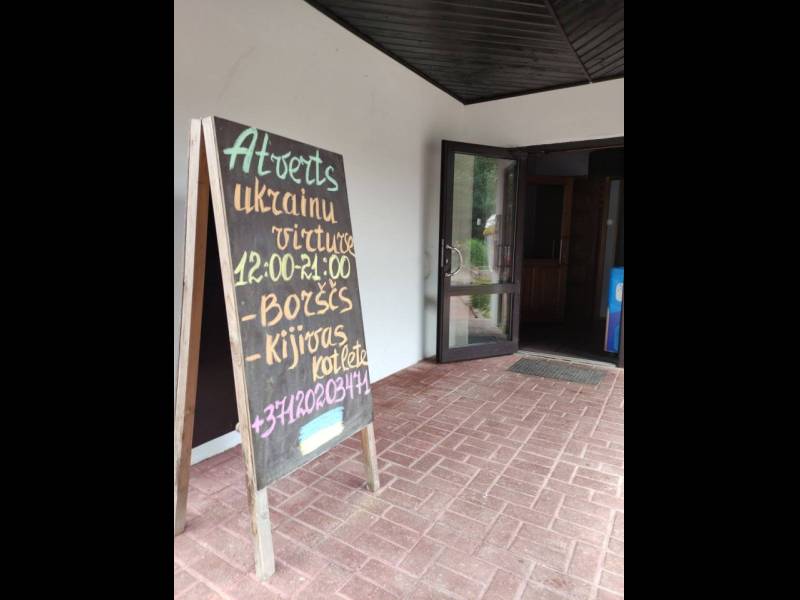 Atverts
ukrainu
virtuve
12:00-21:00
-Borščs
-Kijivas
kotlete
+37120203471